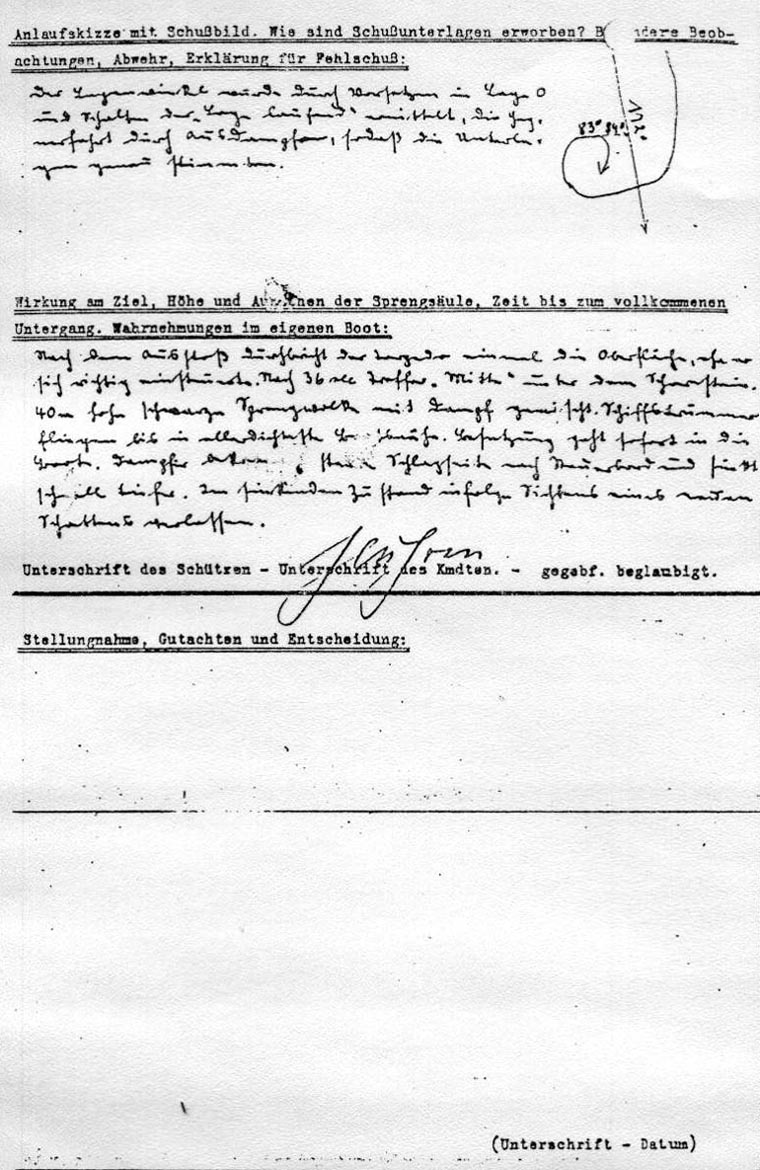 Anlaufskizze mit Schußbild. Wie sind Schußunterlagen erworben? B ndere Beob-
achtungen, Abwehr, Erklärung für Fehlschuß:
Der Gegnerwinkel wurde durch Vorsetzen in Lage 0
und Schalten der „Lage laufend" ermittelt, die Geg.
nerfahrt durch Ausdampfen, sodaß die Unterla-
gen genau stimmten.
83° 84°
Wirkung am Ziel, Höhe und Aus hen der Sprengsäule, Zeit bis zum vollkommenen
Untergang. Wahrnehmungen im eigenen Boot:
Nach dem Ausstoß durchbricht der Torpedo einmal die Oberfläche, ehe er
sich richtig einsteuerte. Nach 36 sec Treffer „Mitte" unter dem Schornstein.
40m hohe schwarze Sprengwolke mit Dampf gemischt. Schiffstrümmer
fliegen bis in allerdichteste Bootsnähe. Besatzung geht sofort in die
Boote. Dampfer bekommt starke Schlagseite nach Steuerbord und sinkt
schnell tiefer. Im sinkenden Zustand infolge Sichtens eines neuen
Schattens verlassen.
Unterschrift des Schützen - Unterschrift des Kmdten. - gegebf. beglaubigt.
Stellungnahme, Gutachten und Entscheidung:
(Unterschrift - Datum)